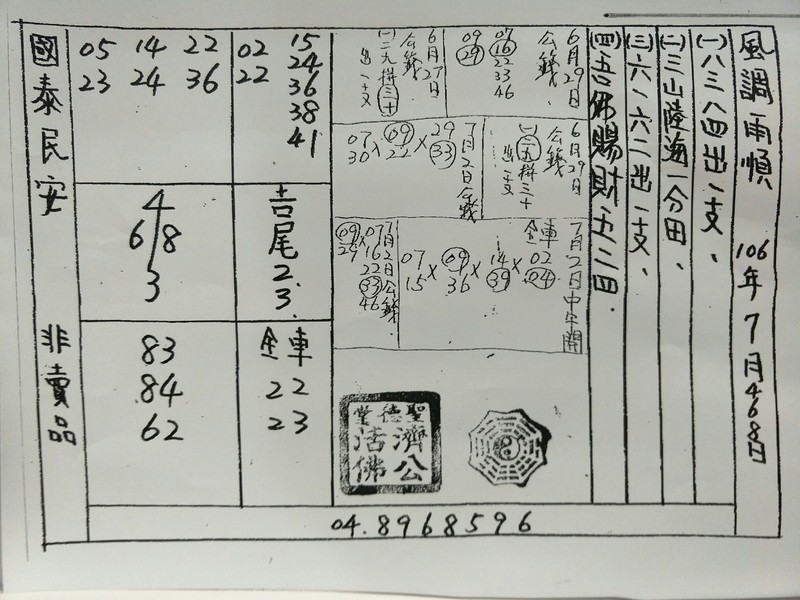 風調雨順
106年7月468日
(一)八三八四出一支、
(二)三山陸海一分田、
(三)六一六二出一支、
(四)吾佛賜財五二四.
6月29日
公籤.
07
16
22
33
46
09
29
6月27日
公籤.
(一)二九拼三十
出一支
6月29日
公籤
(一)二九拼三十
出一支
7月2日公籤
29
33
×
09
22
×
07
30
7月2日中午開
金車
02
04
×
14
39
×
09
36
×
07
15
7月2日公籤.
07
16
22
33
46
×
09
29
聖德堂
濟公
活佛
02 15
22 24
36
38
41
吉尾
2.
3.
金車
22
23
05 14 22
23 24 36
4
6 8
3
83
84
62
國泰民安
非賣品
04.8968596